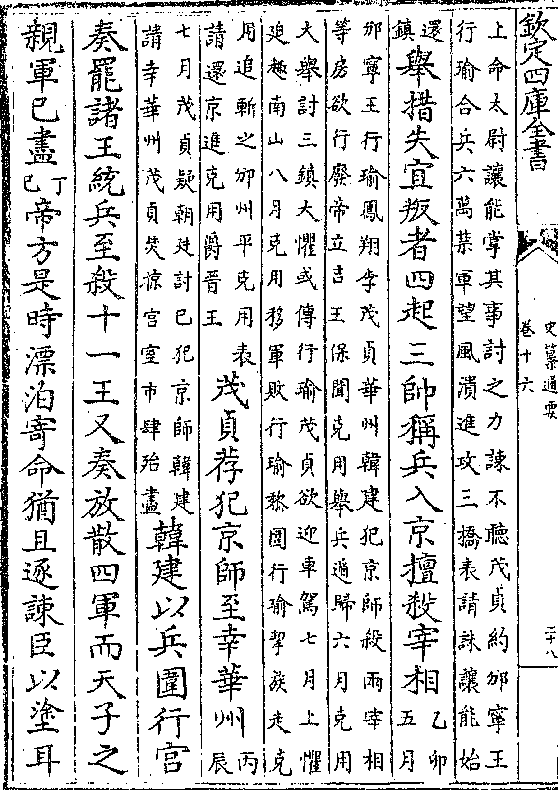 欽定四庫全書
史纂通要
卷十六
二十八
上命太尉讓能掌其事討之力諫不聽茂貞約邠寧王
行瑜合兵六萬禁軍望風潰進攻三橋表請誅讓能始
還鎮舉措失宜叛者四起三帥稱兵入京擅殺宰相乙卯五月
邠寧王行瑜鳳翔李茂貞華州韓建犯京師殺兩宰相
等房欲行廢帝立吉王保聞克用舉兵遁歸六月克用
大舉討三鎮大懼或傳行瑜茂貞欲迎車駕七月上懼
廵趣南山八月克用移軍敗行瑜黎園行瑜挈族走克
用追斬之邠州平克用表
請還京進克用爵晉王茂貞荐犯京師至幸華州丙辰
七月茂貞疑朝廷討已犯京師韓建
請幸華州茂貞焚掠宫室市肆殆盡韓建以兵圍行宫
奏罷諸王統兵至殺十一王又奏放散四軍而天子之
親軍已盡丁巳帝方是時漂泊寄命猶且逐諫臣以塗耳